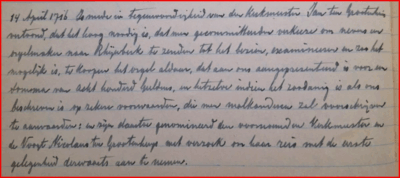 14 April 1726. Is mede in tegenwoordigheid van den Kerkmeester van ter Grootenhuis
vertoond, dat het hoog nodig is, dat men gecommitteerden
orgelmaker naar te zenden tot het bezien, examineren en zoo het
mogelijk is, te koopen het orgel aldaar, dat aan ons gepresenteerd is voor een
somma van acht honderd Guldens, en hetzelve indien het zoodanig is als ons
beschreven is op zekere voorwaarden, die men malkanderen zal voorschrijven
te aanvaarden: en zijn daartoe genomineerd den voornoemden Kerkmeester en
de Voogt Nicolaas ter Grootenhuys met verzoek om haar reis met de eerste
gelegenheid derwaarts aan te nemen.